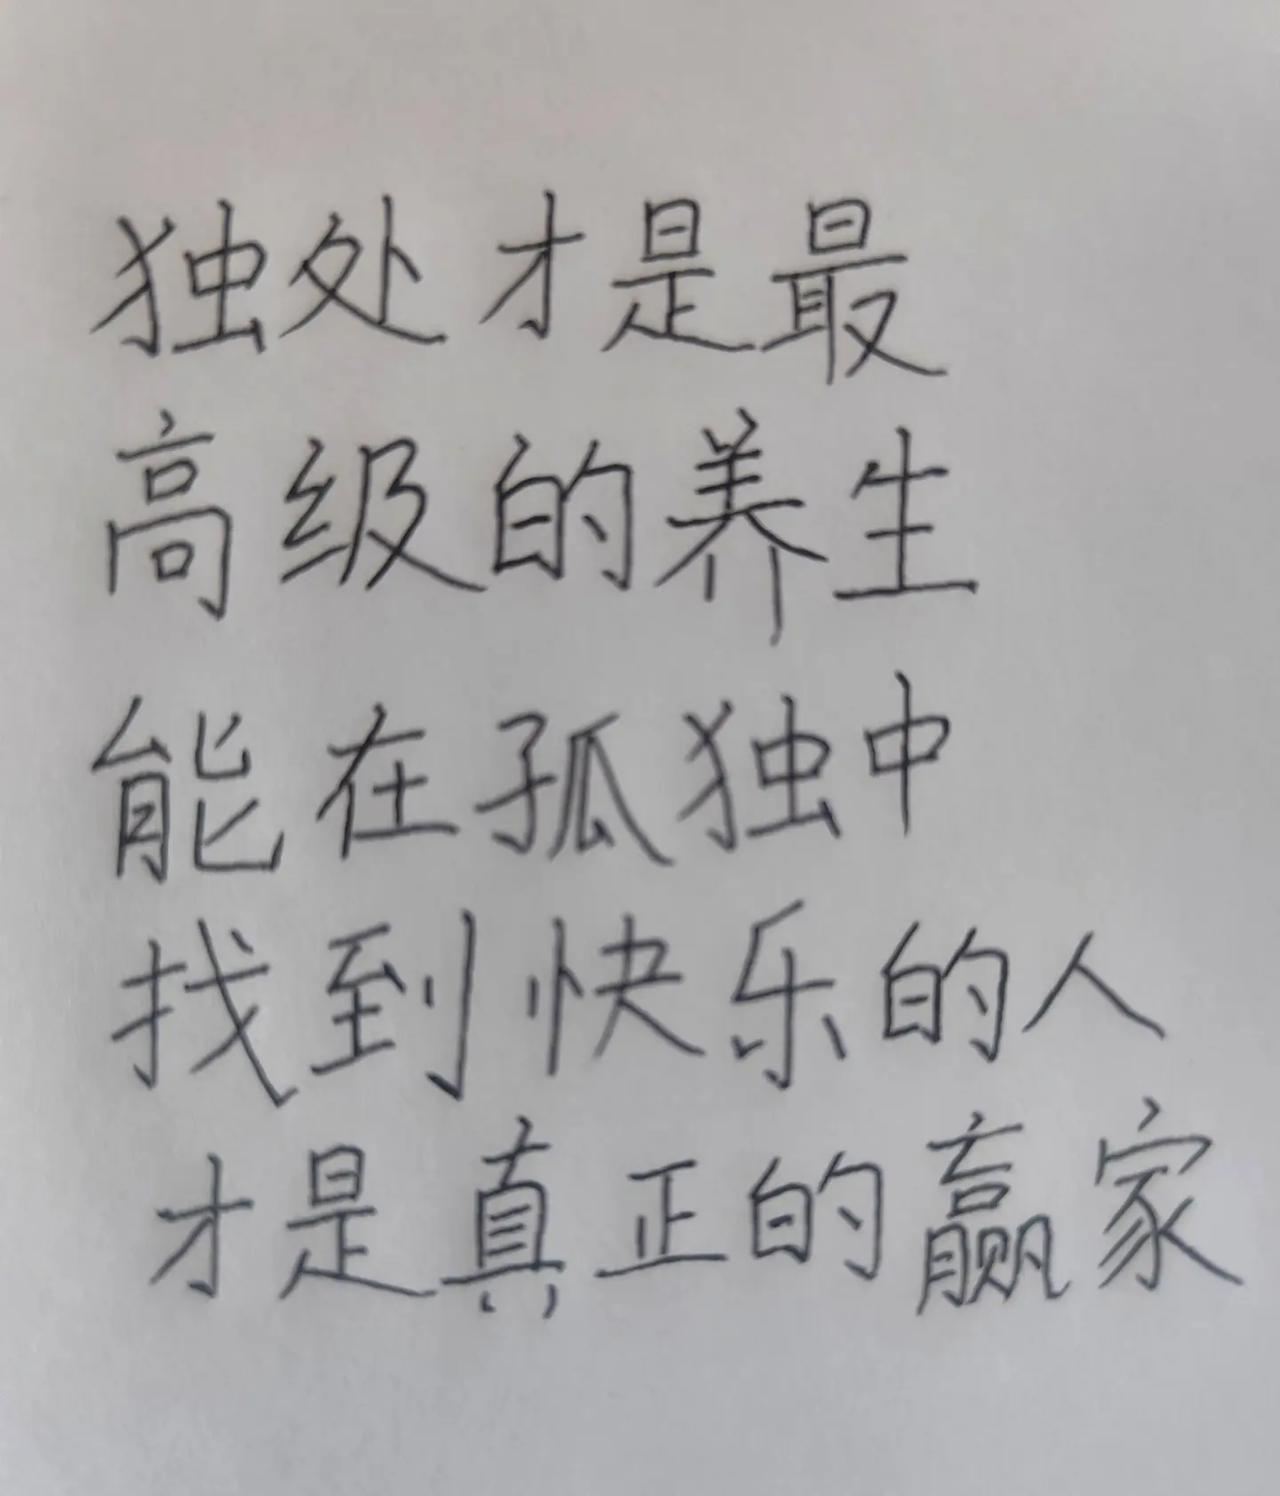 独处才是最
高级的养生
能在孤独中
找到快乐的人
才是真正的赢家